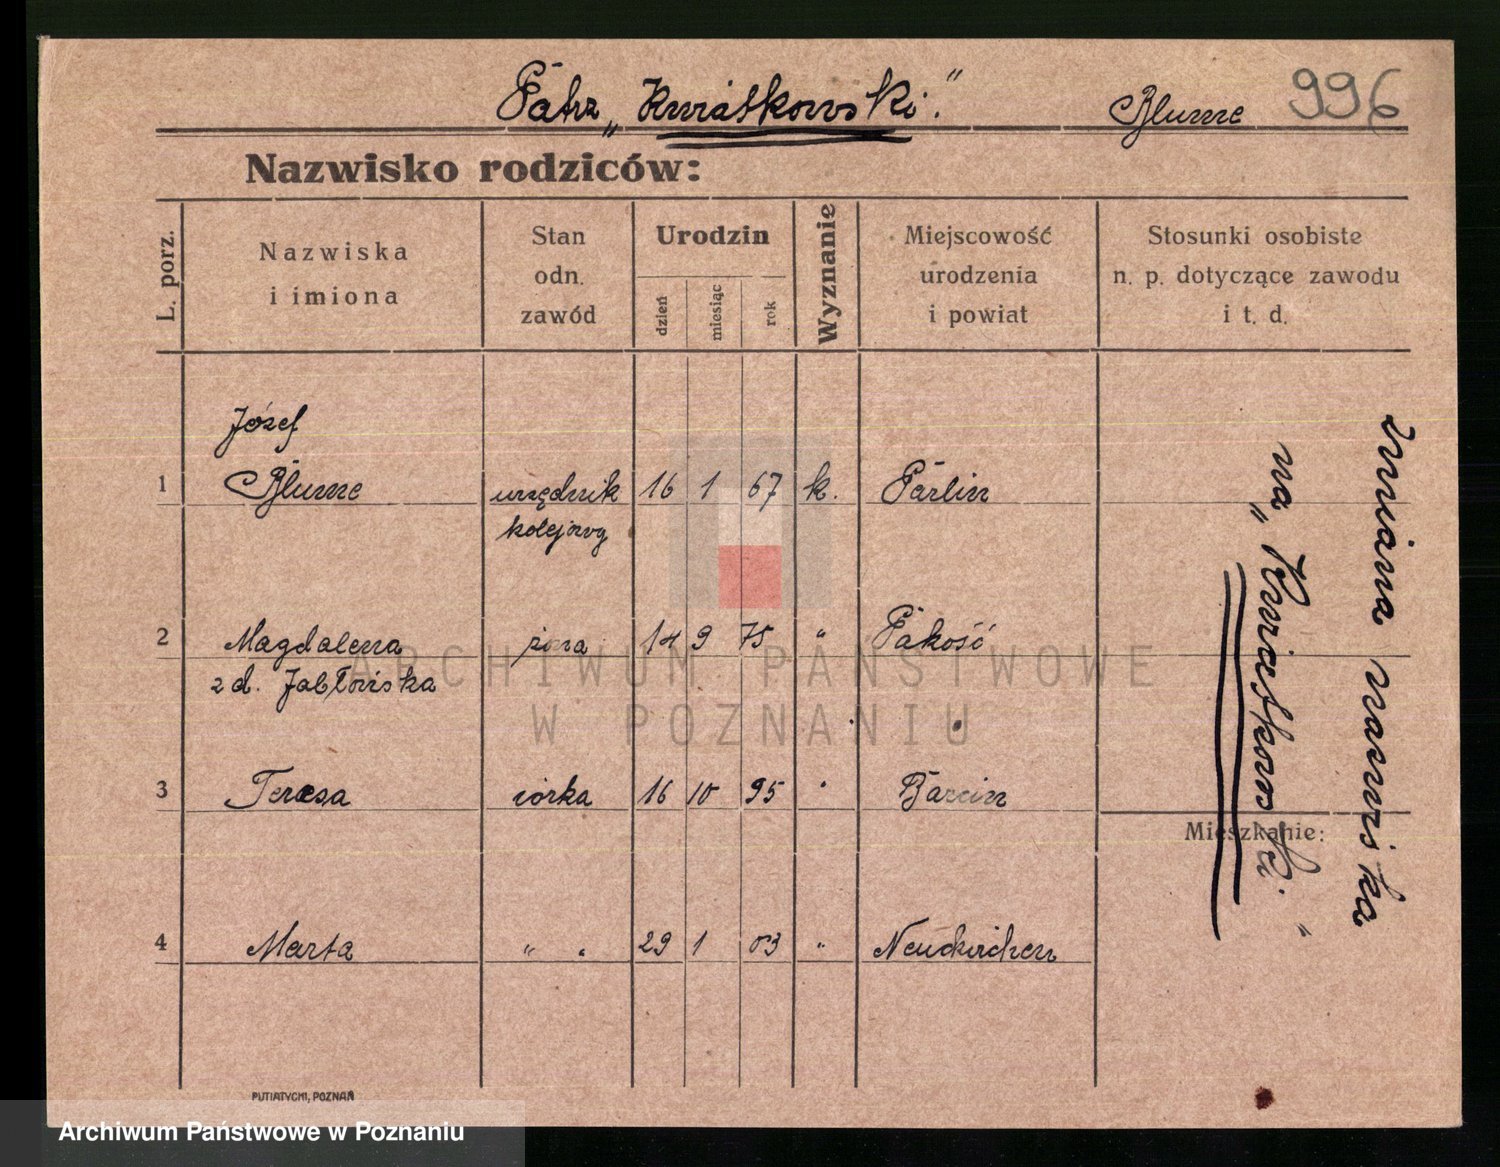 Patrz „Kwiatkowski."
Blume 996
Nazwisko rodziców:
L. porz.
Nazwiska
i imiona
Stan
odn.
zawód
Urodzin
dzień
miesiąc
rok
Wyznanie
Miejscowość
urodzenia
i powiat
Stosunki osobiste
n. p. dotyczące zawodu
i t. d.
Józef
1 Blume urzędnik 16 1 67 k. Parlin
kolejowy
2 Magdalena żona 14 9 75 " Pakość
z d. Jabłońska
3 Teresa córka 16 10 95 " Barcin
4 Marta " " 29 1 03 " Neukirchen
zmiana nazwiska
na „Kwiatkowski"
Mieszkanie:
PUTIATYCKI, POZNAŃ
ARCHIWUM PAŃSTWOWE
W POZNANIU
Archiwum Państwowe w Poznaniu